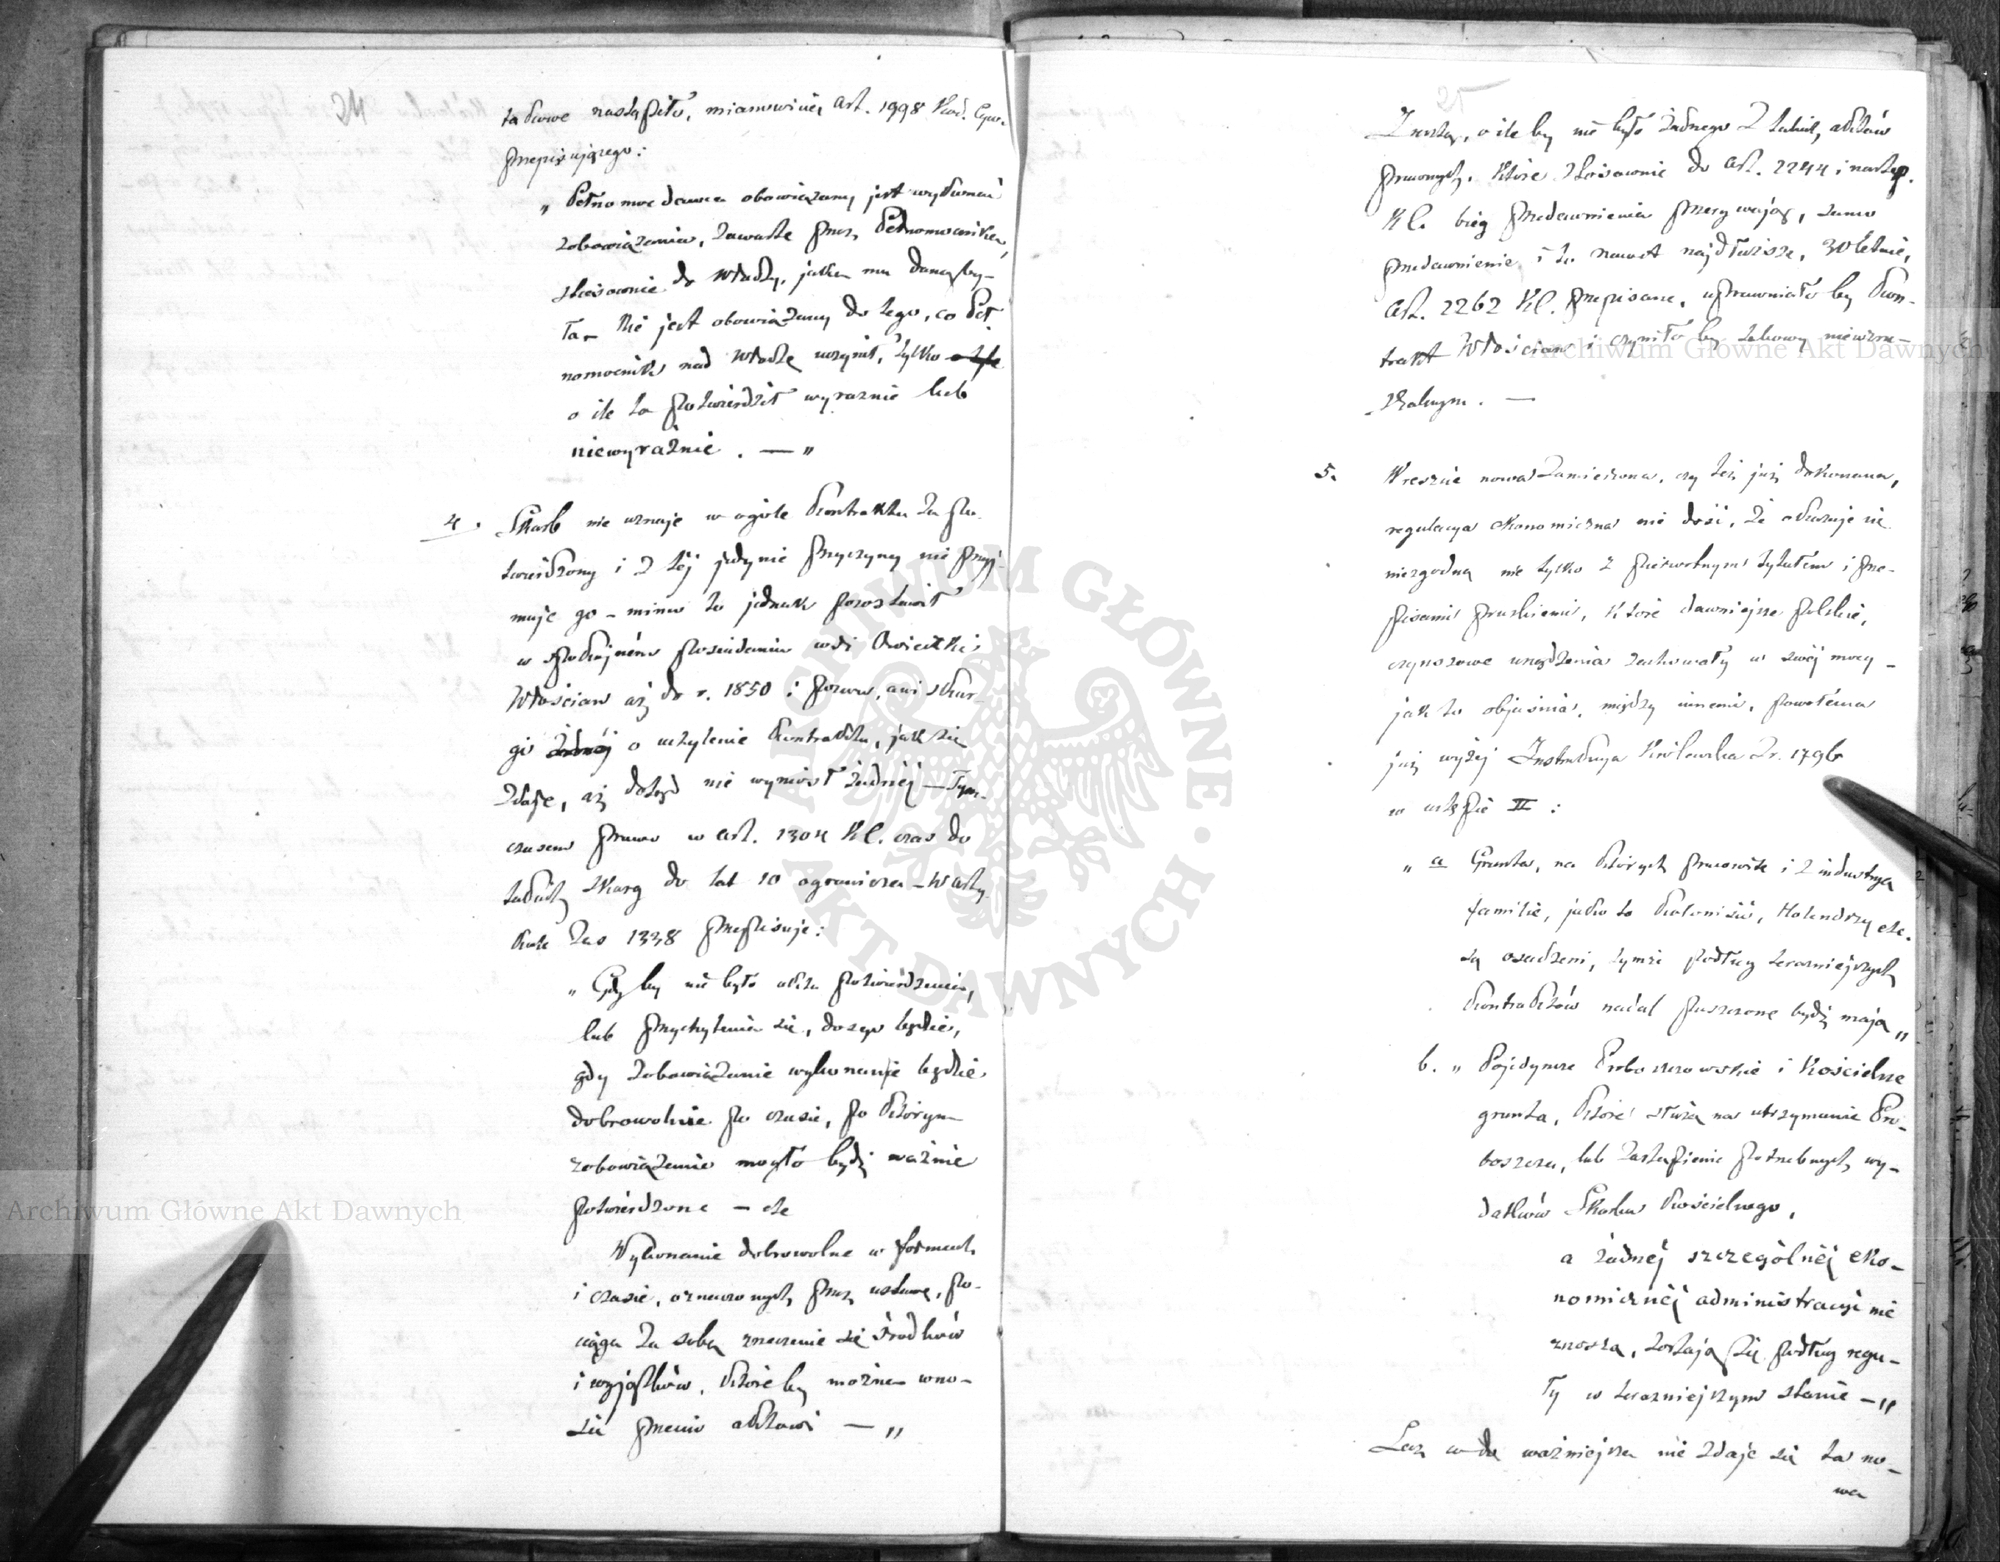 24
takowe nastąpiło, mianowicie, art. 1998 Kod. Cyw.
przepisującego:
„ Pełnomocdawca obowiązany jest wykonać
zobowiązania, zawarte przez Pełnomocnika,
stosownie do władzy, jaka mu daną by-
ła – Nie jest obowiązany do tego, co Peł-
nomocnik nad władzę uczynił, tylko
o ile to potwierdził wyraźnie lub
niewyraźnie . — „
4. Skarb nie uznaje w ogóle Kontraktu za po-
twierdzony i z téj jedynie przyczyny nie przyj-
muje go – mimo to jednak pozostawił
w spokojném posiadaniu wsi
Włościan aż do r. 1850 i pozwu, ani skar-
gi żadnéj o uchylenie Kontraktu, jak się
zdaje, aż dotąd nie wyniosł żadnéj – Tym-
czasem prawo w art. 1304 KC. czas do
takich skarg do lat 10 ogranicza – W arty-
kule zaś 1338 przepisuje:
„ Gdyby nie było aktu potwierdzenia,
lub przychylenia się, dosyć będzie,
gdy zobowiązanie wykonane będzie
dobrowolnie po czasie, po którym
zobowiązanie mogło bydź ważnie
potwierdzone – etc
Wykonanie dobrowolne w formach
i czasie, oznaczonych przez ustawę, po-
ciąga za sobą zrzeczenie się środków
i wyjątków, któreby można wno-
sić przeciw aktowi — „
25
Zresztą, o ile by nie było żadnego z takich aktów
prawnych, które stosownie do art. 2244 i następ.
KC. bieg przedawnienia przerywają, samo
przedawnienie i to nawet najdłuższe, 30letnie,
art. 2262 KC. przepisane, uprawniało by Kon-
trakt Włościan i czyniło by takowy niewzru-
szalnym. —
5. Wreszcie nowa zamierzona, czy też już dokonana,
regulacya ekonomiczna nie dość, że okazuje się
niezgodną nie tylko z pierwotnym tytułem i prze-
pisami pruskiemi, które dawniejsze polskie,
czynszowe urządzenia zachowały w swéj mocy –
jak to objaśnia, między innemi, powołana
już wyżéj Instrukcya Królewska z r. 1796
w ustępie II :
„ a Grunta, na których pracowite i z industryą
familie, jako to Koloniści, Holendrzy etc.
są osadzeni, tymże podług teraźniejszych
Kontraktów nadal puszczone bydź mają „
b. „ Pojedyncze Proboszczowskie i Kościelne
grunta, które służą na utrzymanie Pro-
boszcza, lub zastąpienie potrzebnych wy-
datków Skarbu Kościelnego,
a żadnéj szczególnéj eko-
nomicznéj administracyi nie
znoszą, zostają się podług regu-
ły w teraźniejszym stanie – „
Lecz w da ważniejsza nie zdaje się ta no-
wa
Archiwum Główne Akt Dawnych
Archiwum Główne Akt Dawnych
ARCHIWUM GŁÓWNE · AKT DAWNYCH ·